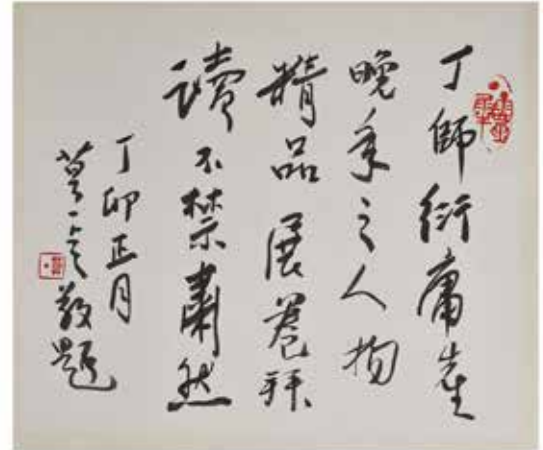 丁師衍庸先生
晚年之人物
精品展卷拜
讀不禁肅然
丁卯正月
莫一点敬題